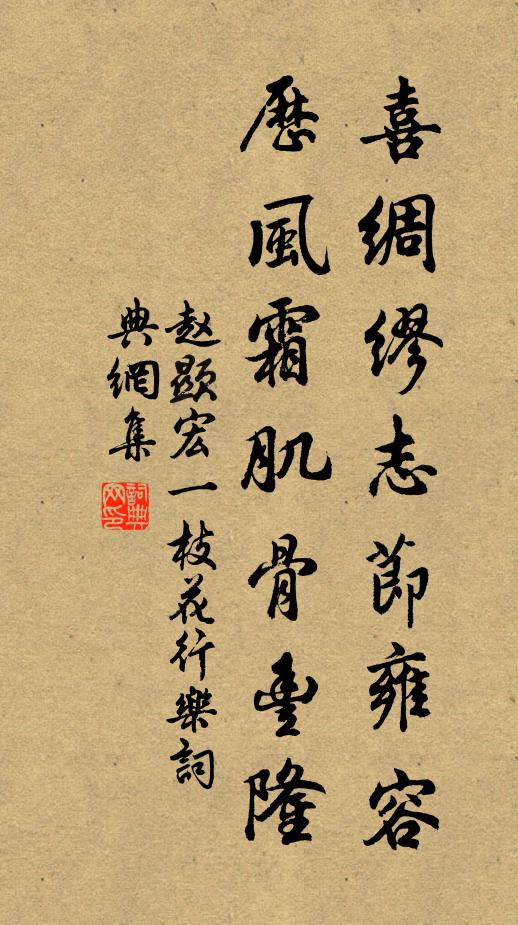 喜綢繆志節雍容
歷風霜肌骨豐隆
赵顯宏一枝花行樂詞
典網集
詞典网印